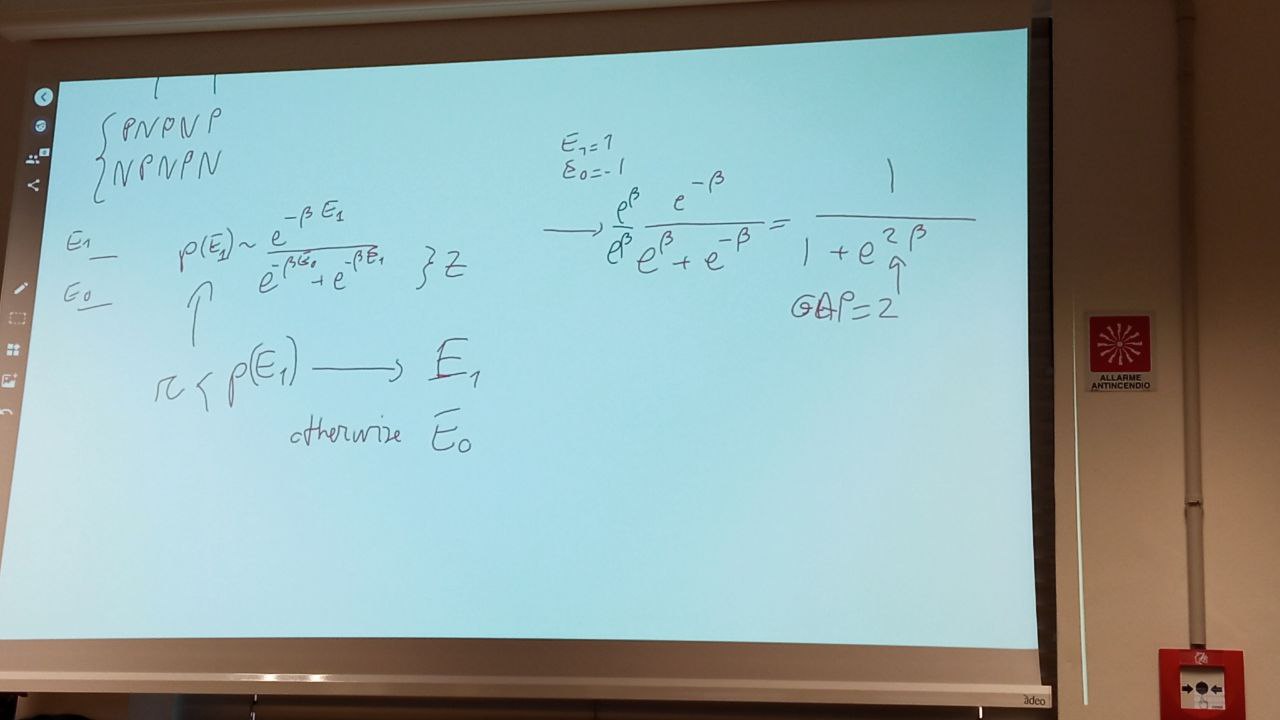 { PNPNP
{ NPNPN
E₁
E₀
p(E₁) ~ e^{-βE₁} / (e^{-βE₀} + e^{-βE₁}) } Z
r < p(E₁) ⟶ E₁
otherwize E₀
E₁=1
E₀=-1
⟶ e^β/e^β e^{-β} / (e^β + e^{-β}) = 1 / (1 + e^{2β})
GAP=2
ALLARME
ANTINCENDIO
adeo